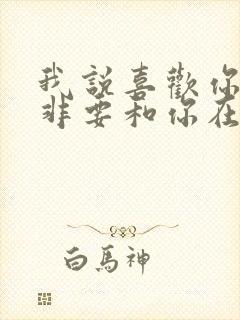 我說喜歡你
非要和你在
白馬神